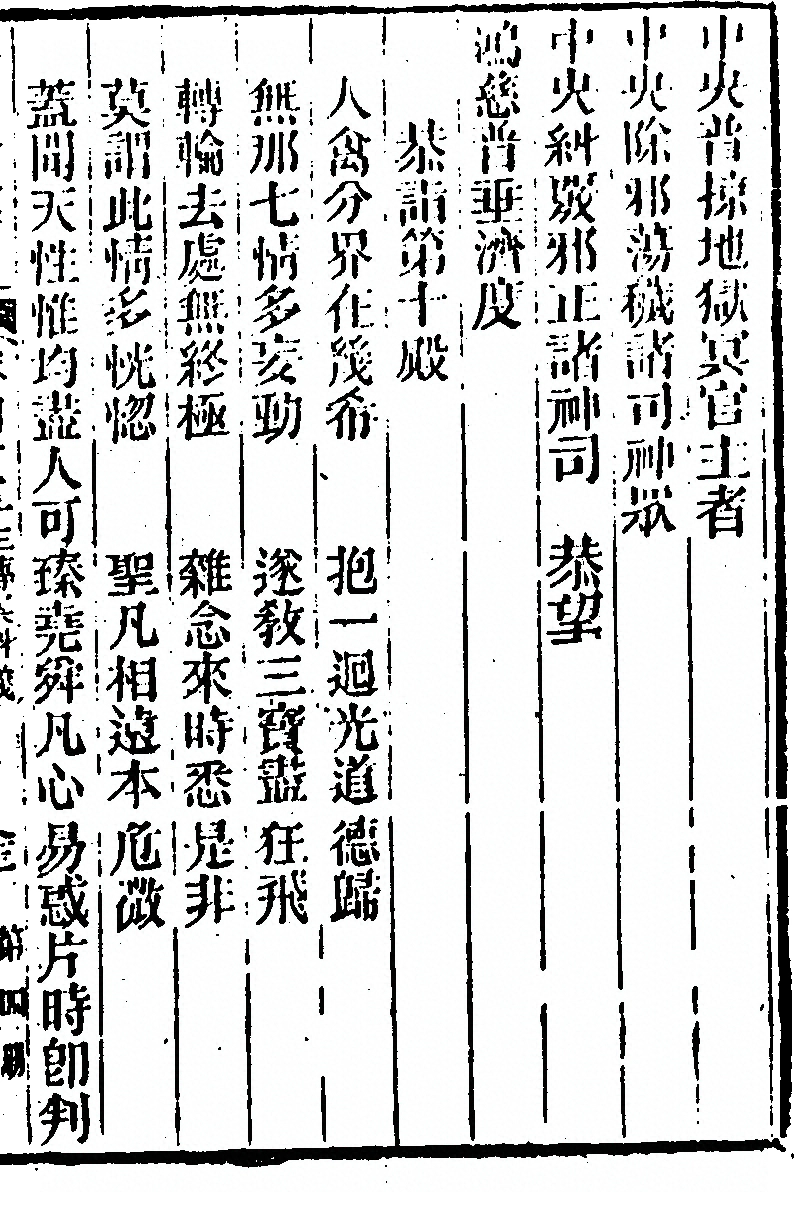 中央普掠地獄冥官主者
中央除邪蕩穢諸司神眾
中央糾嚴邪正諸神司　恭望
鴻慈普垂濟度
恭詣第十殿
人禽分界在幾希　抱一迴光道德歸
無那七情多妄動　遂教三寶盡狂飛
轉輪去處無終極　雜念來時悉是非
莫謂此情多恍惚　聖凡相遠本危微
蓋聞天性惟均盡人可臻堯舜凡心易惑片時卽判
第四册